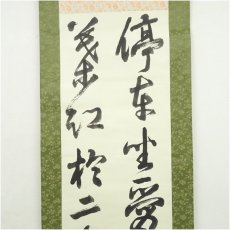 停車坐愛
葉紅於二